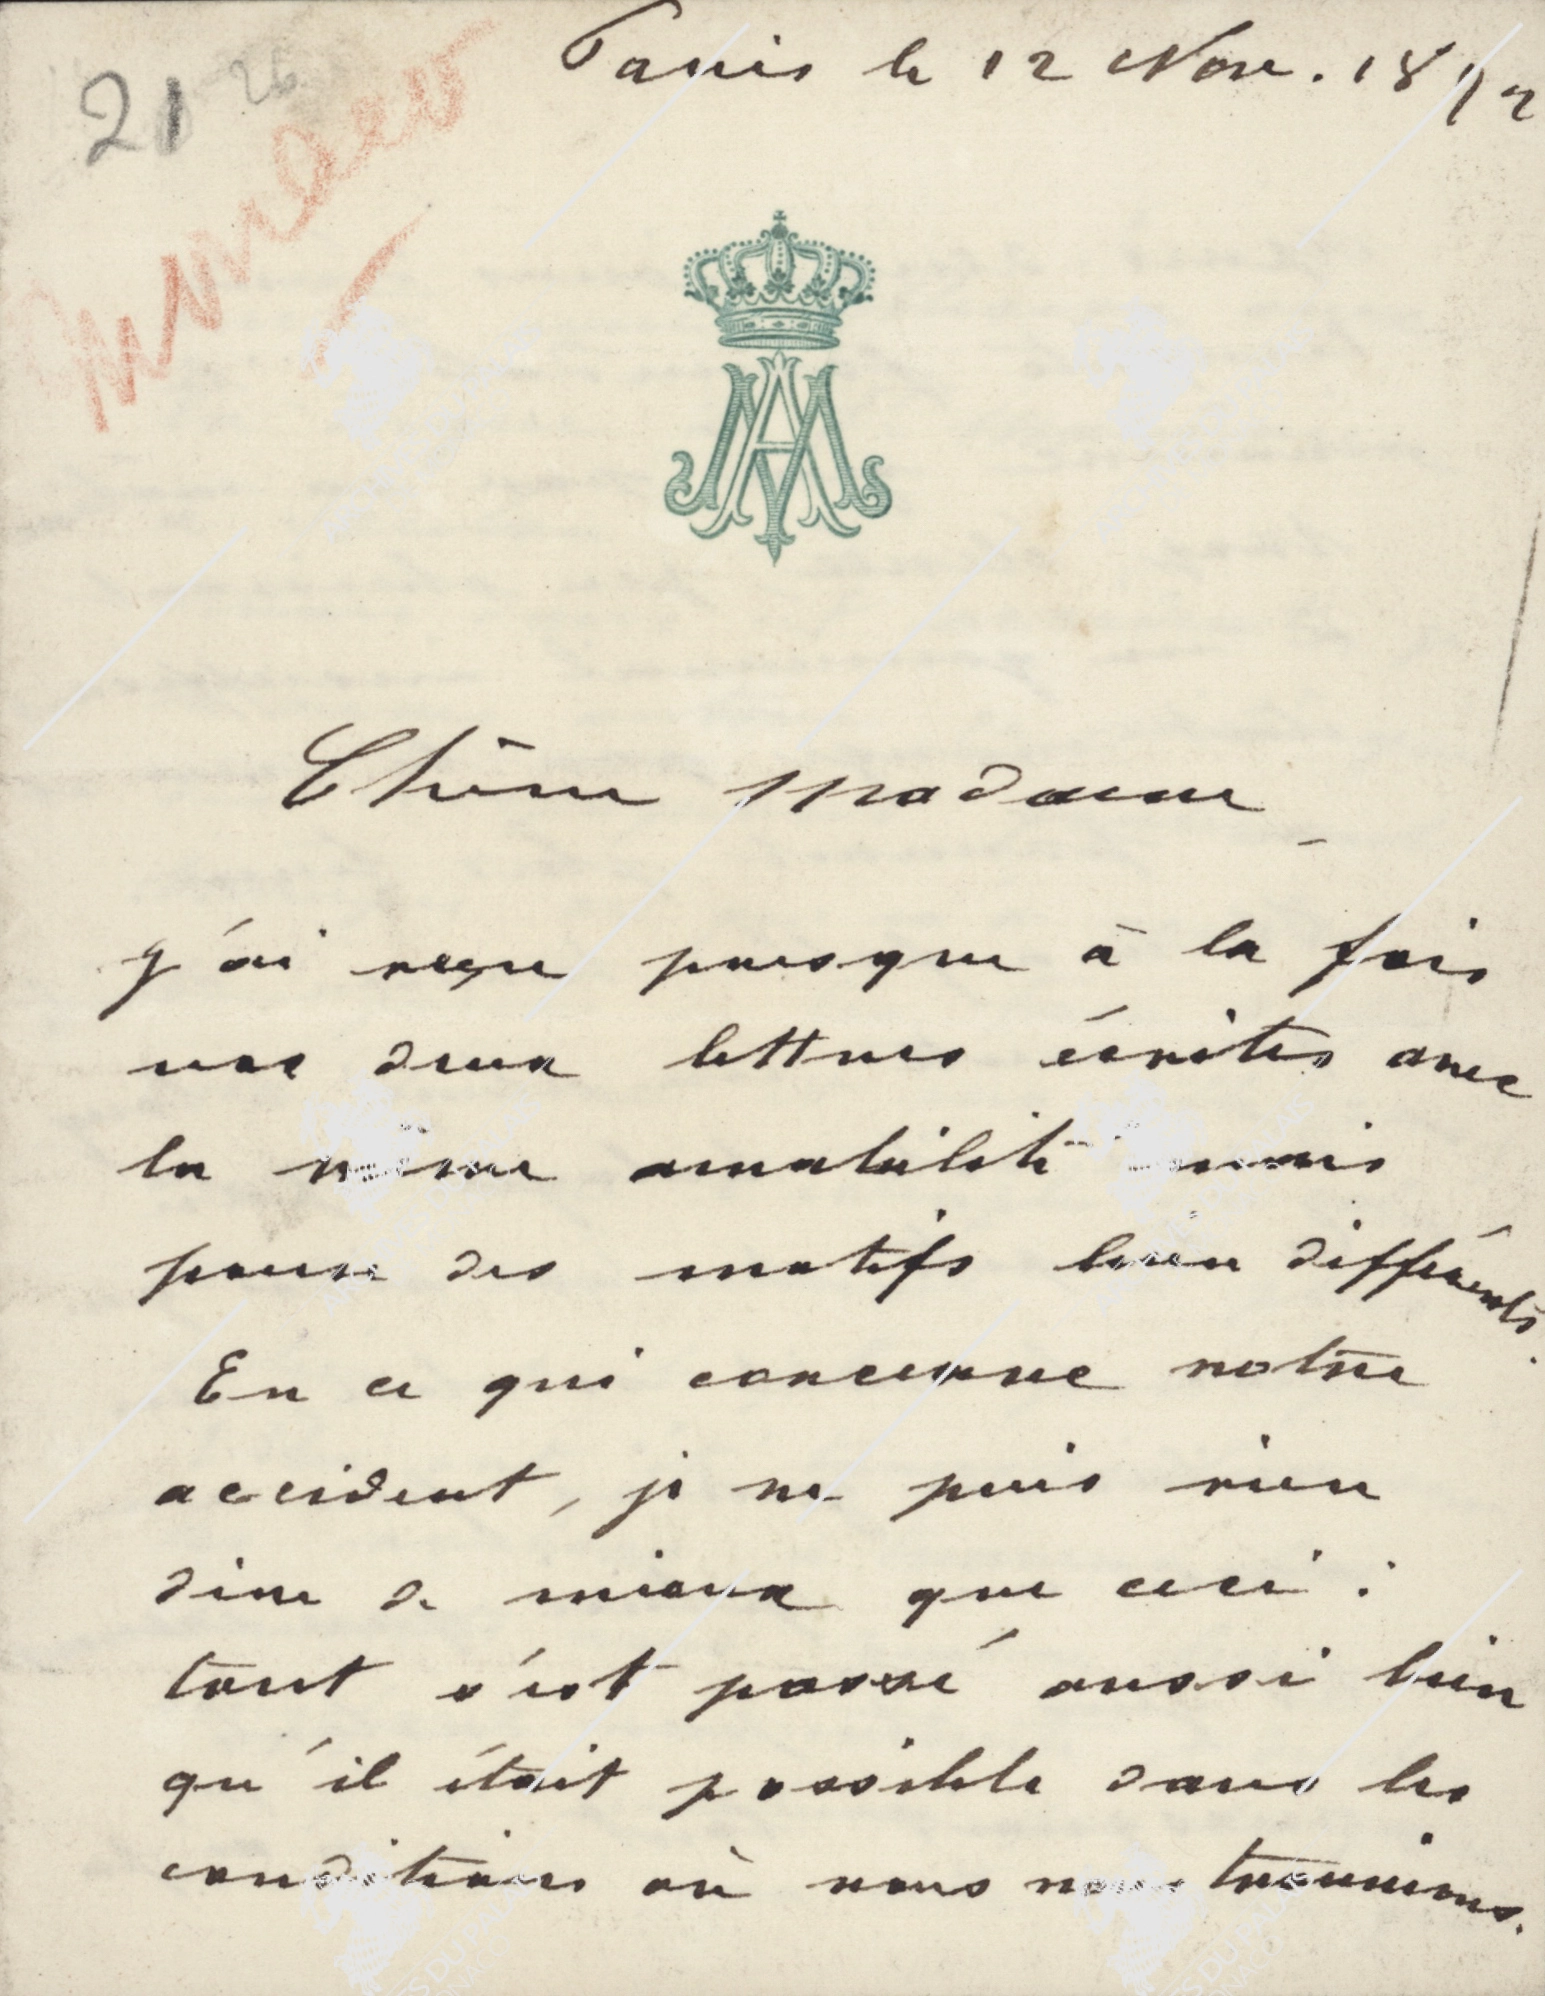 21 26
Paris le 12 Nov. 1892
Chère Madame
J'ai reçu presque à la fois
vos deux lettres écrites avec
la même amabilité mais
pour des motifs bien différents.
En ce qui concerne notre
accident, je ne puis rien
dire de mieux que ceci :
tout s'est passé aussi bien
qu'il était possible dans les
conditions où nous nous trouvions.